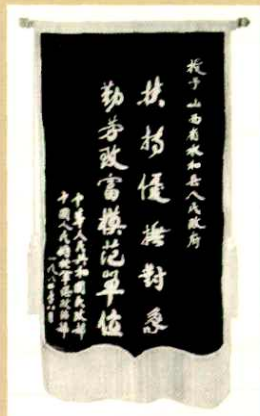 授予山西省永和县人民政府
扶持優撫對象
勤劳致富模范单位
中华人民共和国民政部
中国人民解放军总政治部
一九八四年八月